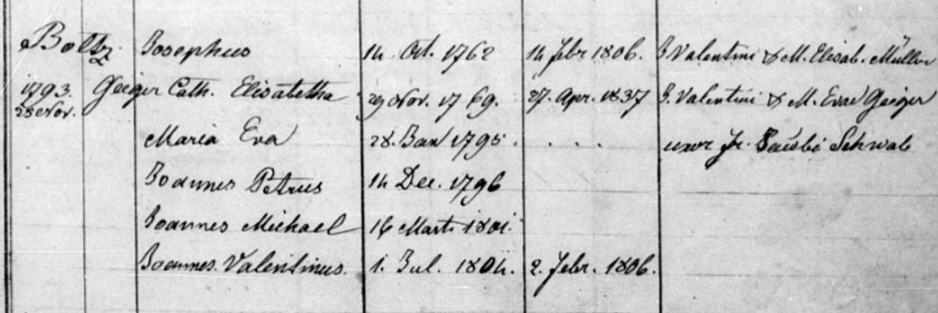 Boltz. Josephus 14 Oct. 1762 14 Febr 1806. J. Valentini & M. Elisab. Müller
1793. Geiger Cath. Elisabetha 29 Nov. 17 69. 27. Apr. 1837 J. Valentini & M. Evae Geiger
28 Nov.
Maria Eva 28. Jan 1795. . . . uxor Schwab
Joannes Petrus 14 Dec. 1796
Joannes Michael 16 Marti 1801.
Joannes. Valentinus. 1. Jul. 1804. 2. Febr. 1806.